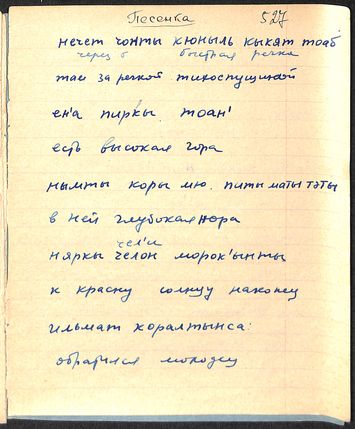 Песенка 527
нечет чонты кюныль кыкят тоаб
через б быстрая речка
там за рекой тихоспущиной
ен'а пиркы тоан'
есть высокая гора
нымты коры мю. питы маты тэты
в ней глубокая нора
чел'и
няркы челон морок'ынты
к красну солнцу наконец
ильмат хоралтынса:
обратился молодец